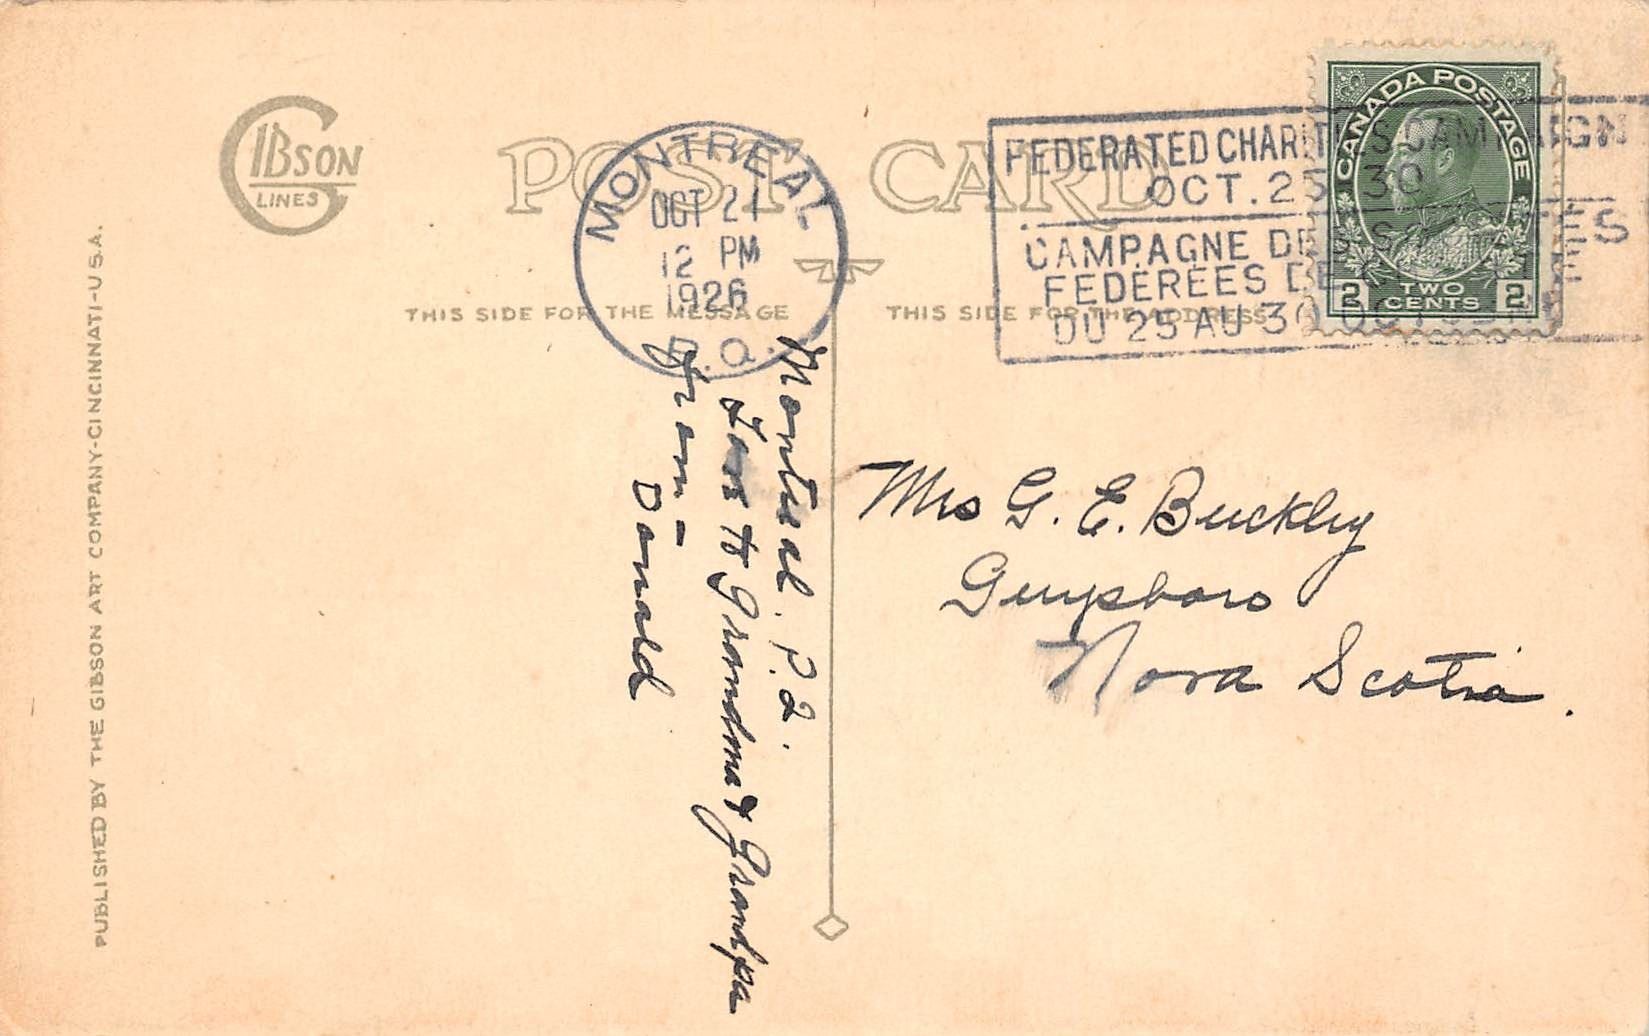 GIBSON
LINES
POST CARD
THIS SIDE FOR THE MESSAGE
THIS SIDE FOR THE ADDRESS
PUBLISHED BY THE GIBSON ART COMPANY-CINCINNATI-U.S.A.
MONTREAL
OCT 21
12 PM
1926
P.Q.
FEDERATED CHARITIES CAMPAIGN
OCT. 25 30
CAMPAGNE DES
FEDÉRÉES DE
DU 25 AU 30 OCT
CANADA POSTAGE
2 TWO CENTS 2
Montreal. P.2.
Love to Grandma & Grandpa
From -
Donald
Mrs G. E. Buckley
Guysboro
Nova Scotia.